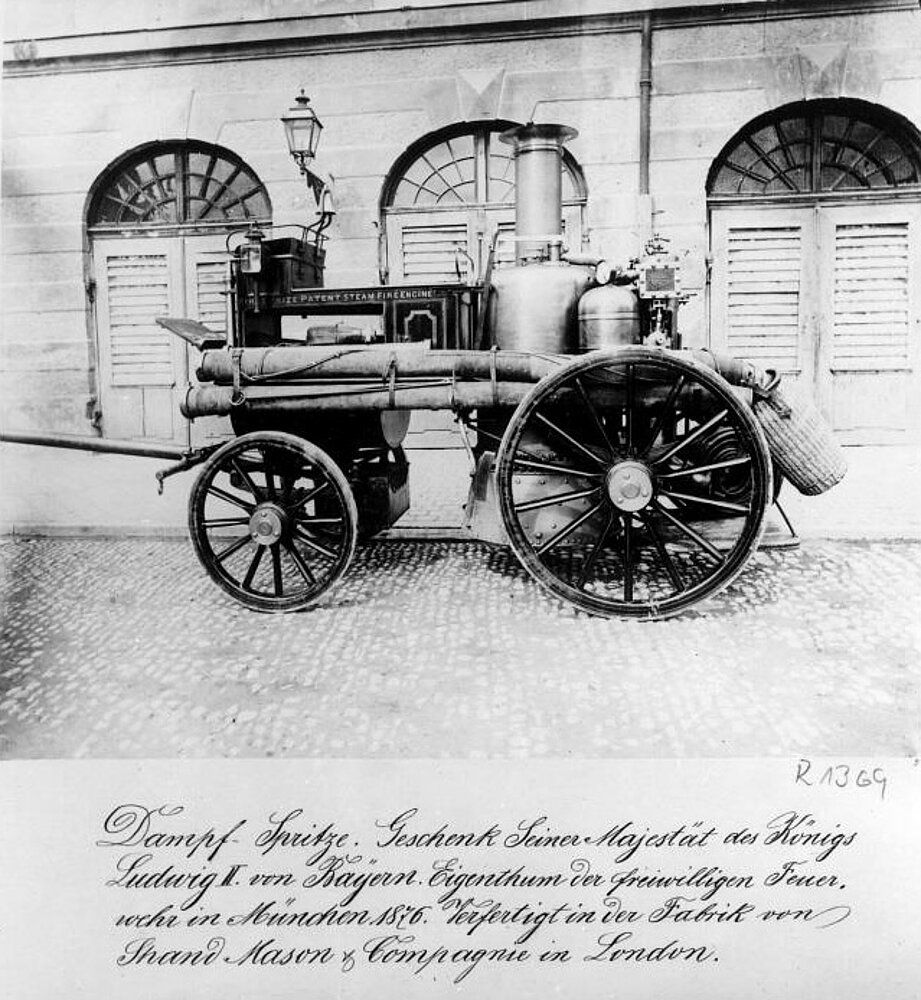 SIZE PATENT STEAM FIRE ENGINE
R 1369
Dampf-Spritze. Geschenk Seiner Majestät des Königs
Ludwig II. von Bayern. Eigenthum der freiwilligen Feuer,
wehr in München 1876. Verfertigt in der Fabrik von
Shand Mason & Compagnie in London.